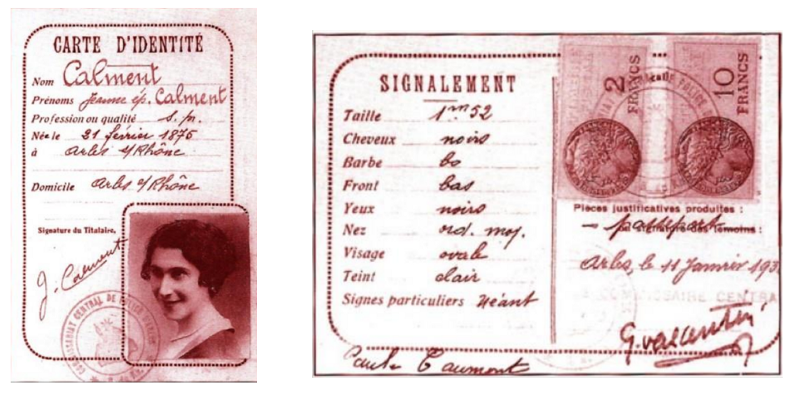 CARTE D'IDENTITÉ
Nom Calment
Prénoms Jeanne ép. Calment
Profession ou qualité s.p.
Née le 21 février 1875
à Arles s/Rhône
Domicile Arles s/Rhône
Signature du Titulaire,
J. Calment
COMMISSARIAT CENTRAL DE POLICE
SIGNALEMENT
Taille 1m52
Cheveux noirs
Barbe
Front bas
Yeux noirs
Nez ord. moy.
Visage ovale
Teint clair
Signes particuliers Néant
2 FRANCS
10 FRANCS
Pièces justificatives produites :
témoins :
Arles, le 11 Janvier 193
COMMISSAIRE CENTRA